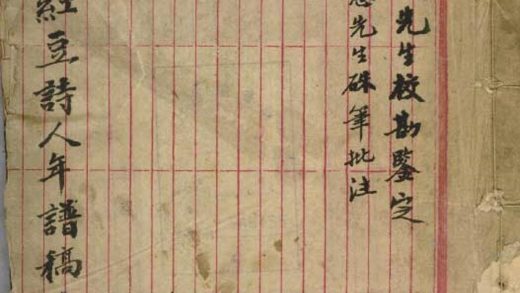 先生校勘鑒定
先生硃筆批注
紅豆詩人年譜稿